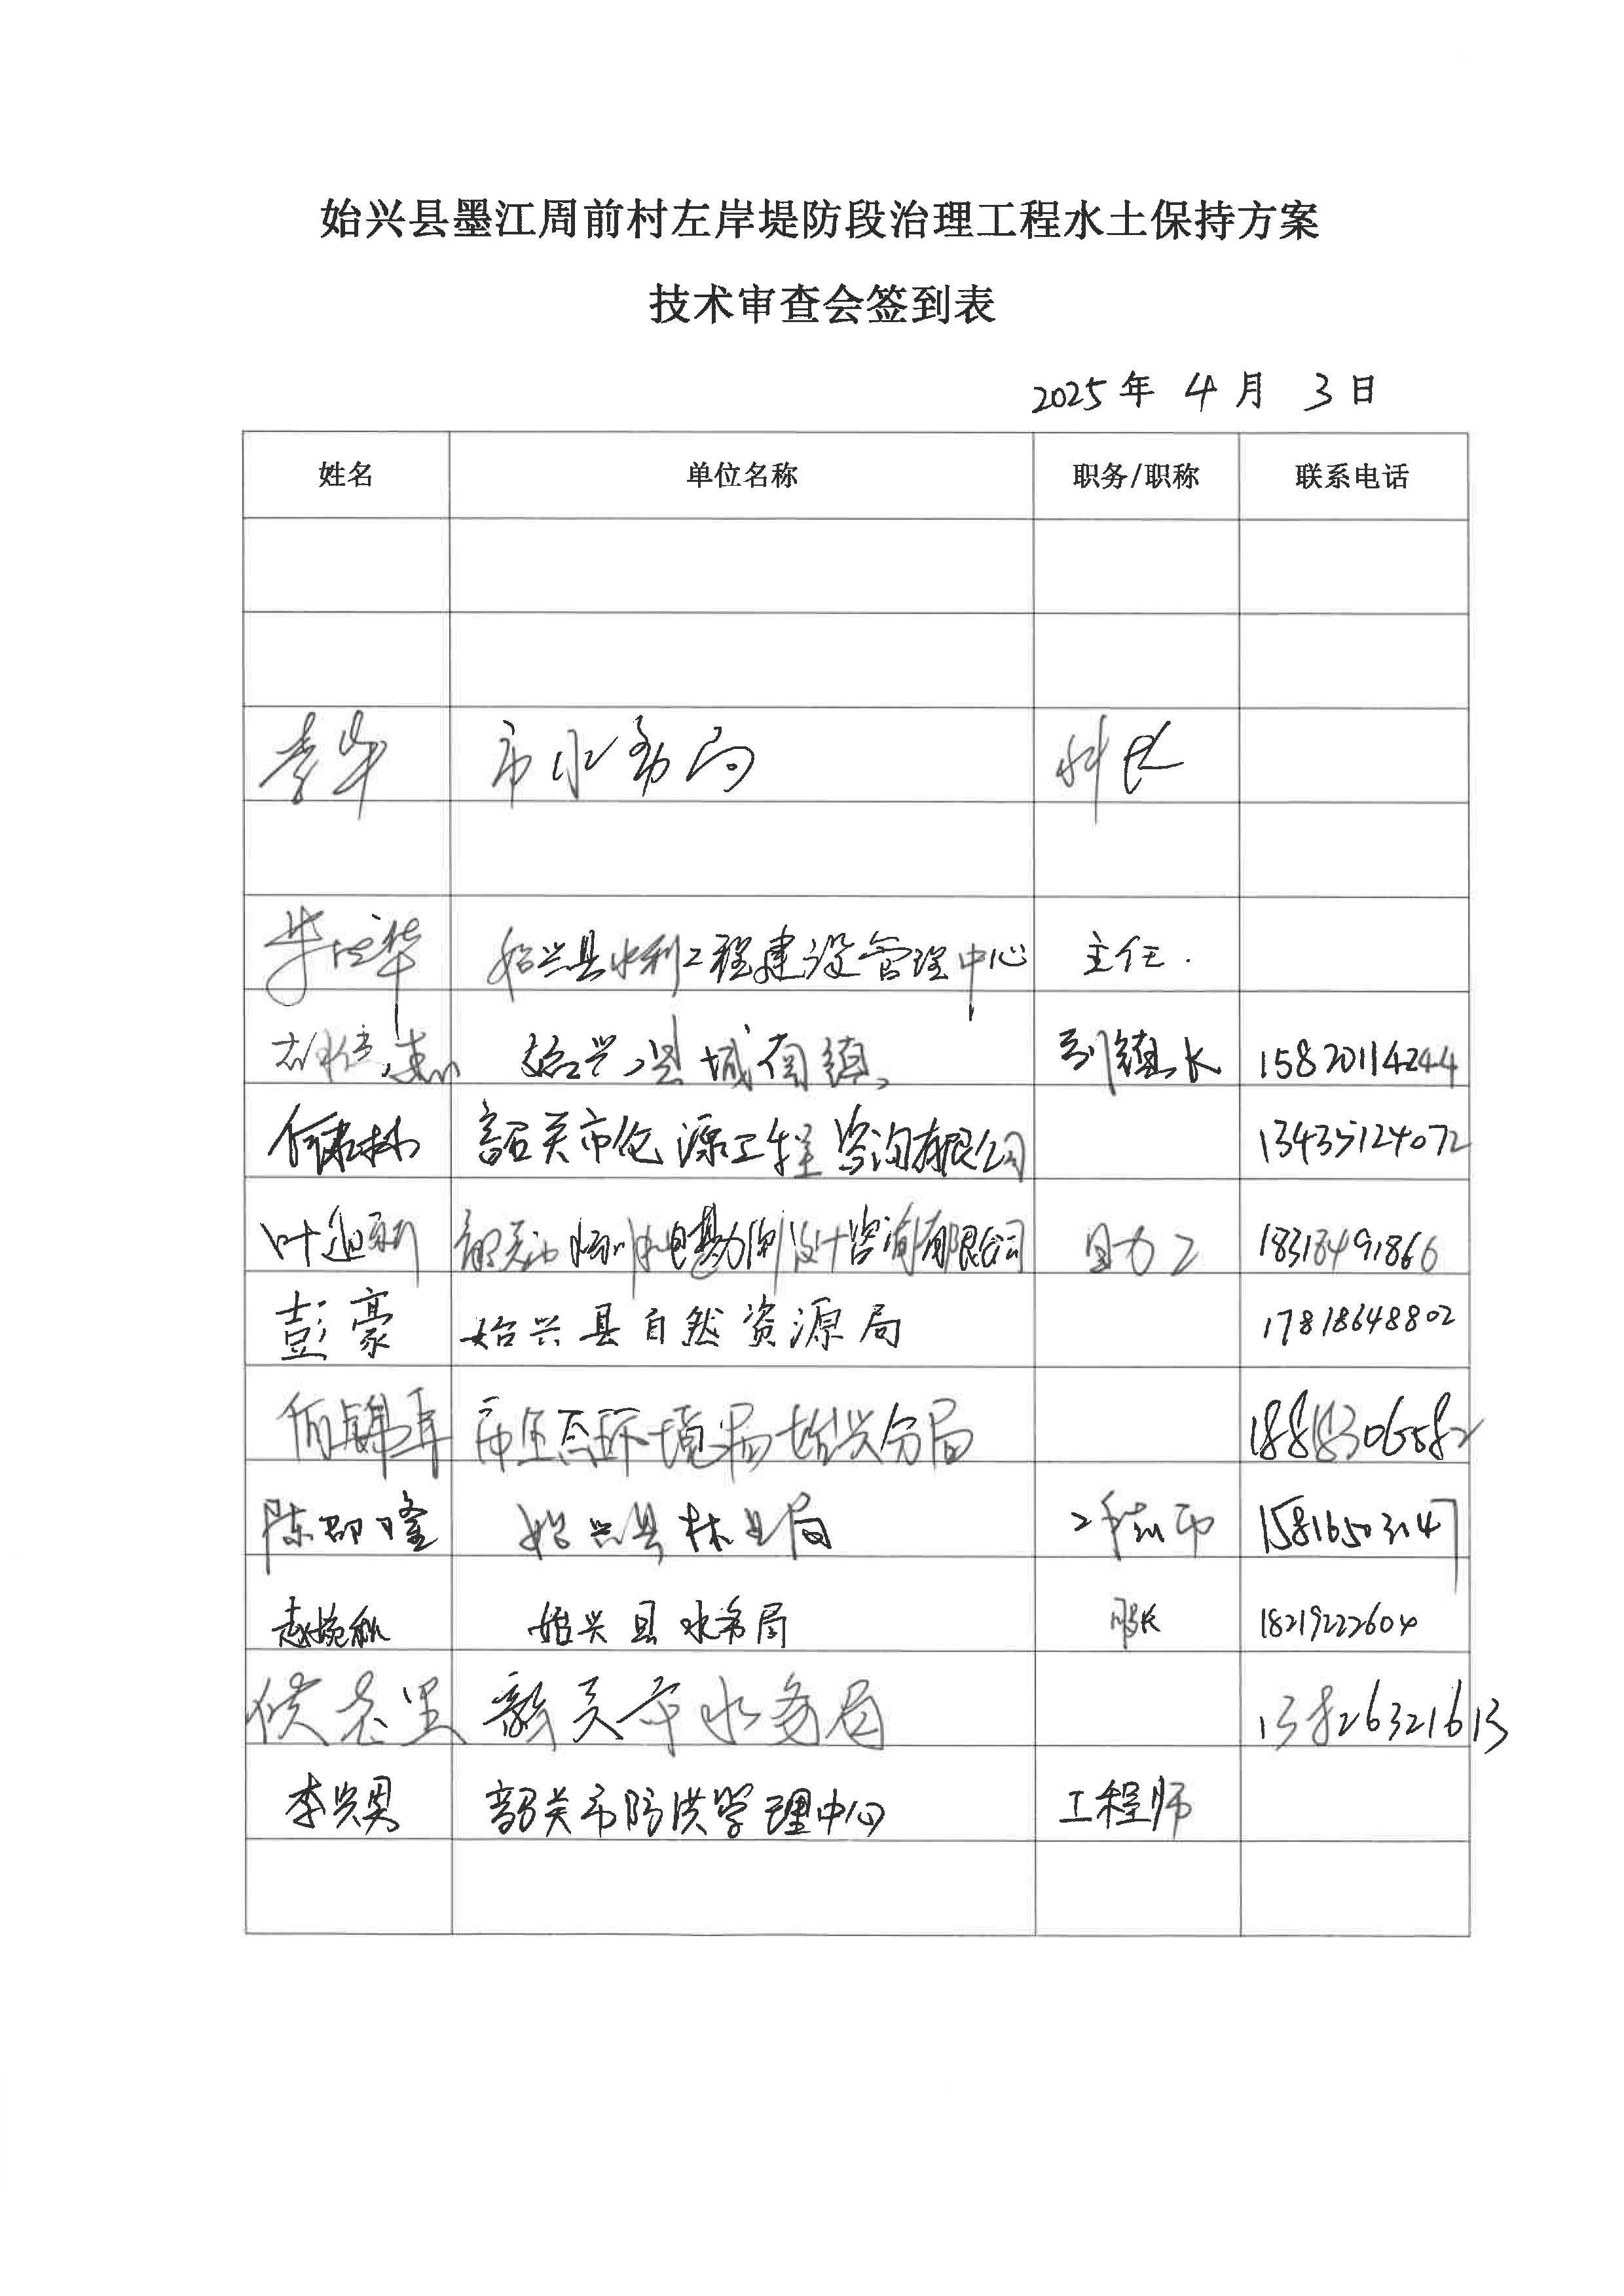 始兴县墨江周前村左岸堤防段治理工程水土保持方案
技术审查会签到表
2025年 4月 3日
姓名 单位名称 职务/职称 联系电话
李华 市水务局 科长
华 始兴县水利工程建设管理中心 主任.
始兴县城南镇 副镇长 15820114244
何 林 韶关市 源工程咨询有限公司 13435124072
叶 水利水电勘测设计咨询有限公司 助工 18318491866
彭豪 始兴县自然资源局 17818648802
市生态环境局始兴分局
陈 隆 始兴县林业局 工程师 15816503147
赵婉秋 始兴县水务局 股长 18219222604
侯 韶关市水务局 13826321613
李兴男 韶关市防洪管理中心 工程师